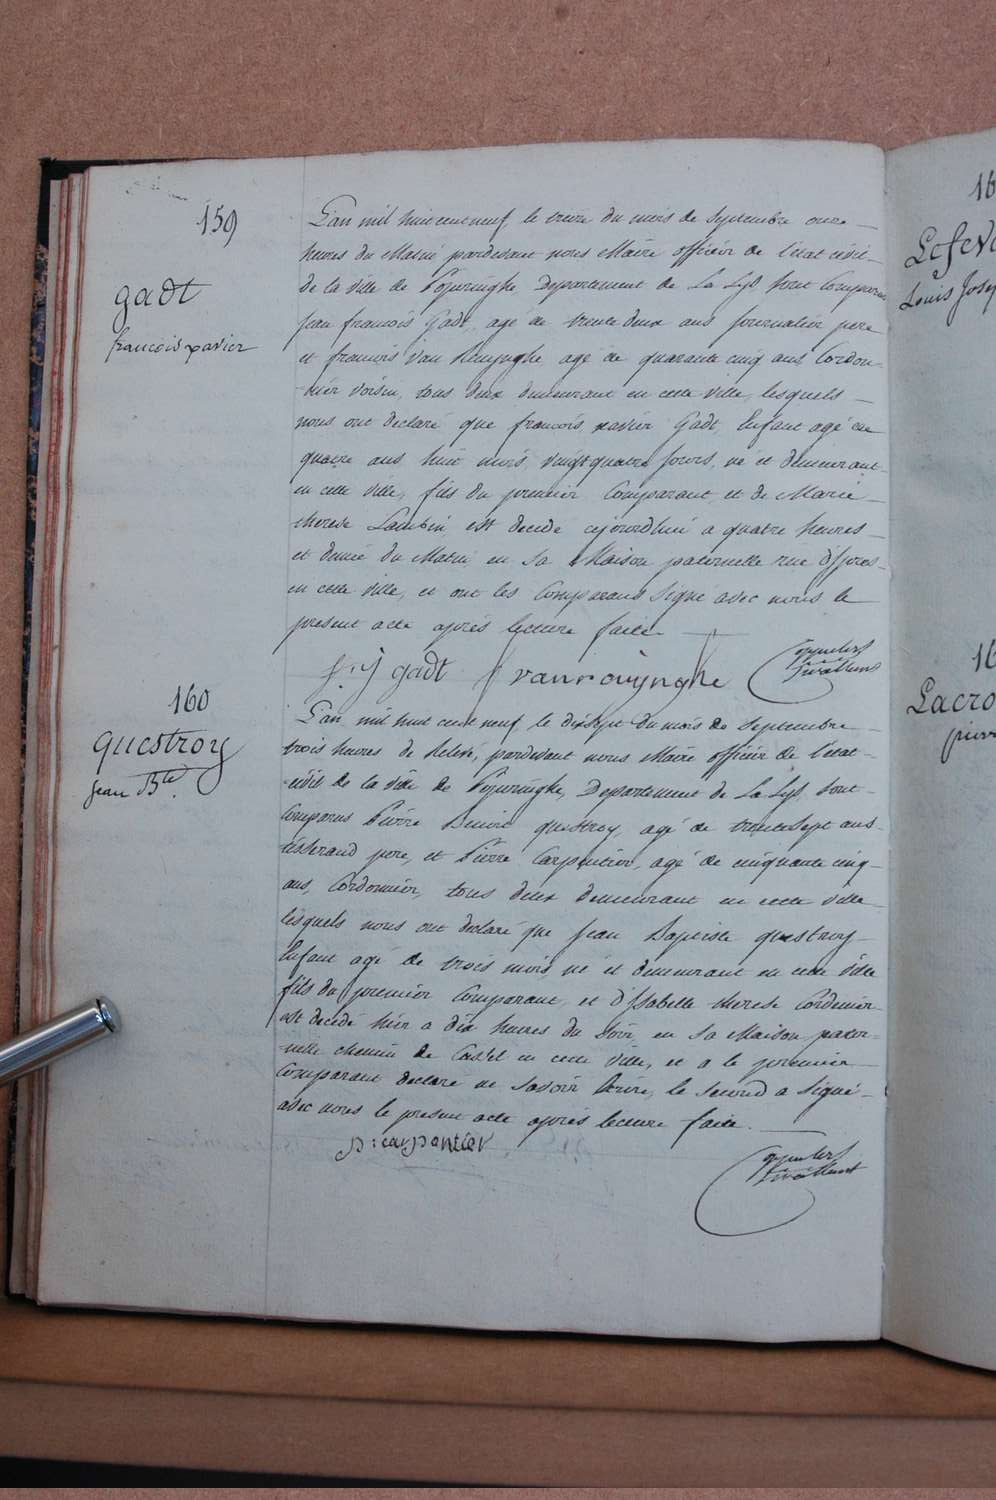 159
gadt
francois xavier
L'an mil huit cent neuf, le treize du mois de Septembre onze
heures du Matin pardevant nous Maire officier de l'état civil
de la ville de Poperinghe Departement de La Lys sont Comparus
Jean francois Gadt, agé de trente deux ans Journalier pere
et francois Van Rouynghe agé de quarante cinq ans Cordon-
-nier voisin, tous deux demeurant en cette ville, lesquels
nous ont declaré que francois xavier Gadt, Enfant agé de
quatre ans huit mois, vingt quatre Jours, né et demeurant
en cette ville, fils du premier Comparant, et de Marie
therese est decedé cejourdhui a quatre heures
et demie du Matin en sa Maison paternelle rue d'Ypres
en cette ville, et ont les Comparans signé avec nous le
present acte après lecture faite
gadt f vanrouynghe
160
questroy
jean Bte.
L'an mil huit cent neuf le dixsept du mois de Septembre
trois heures de Relevé, pardevant nous Maire officier de l'état
-civil de la ville de Poperinghe, Departement de La Lys sont
Comparus Pierre Benoit questroy, agé de trentesept ans
tisserand pere, et Pierre Carpentier, agé de cinquante cinq
ans, Cordonnier, tous deux demeurant en cette ville
lesquels nous ont declaré que Jean Baptiste questroy
Enfant agé de trois mois né et demeurant en cette ville
fils du premier Comparant, et d'Isabelle therese Cordenier
est decedé hier a dix heures du Soir en sa Maison pater-
-nelle chemin de Cassel en cette ville, et a le premier
Comparant declaré ne savoir Ecrire, le second a signé
avec nous le present acte après lecture faite.
p: carpentier
16
Lefev
Louis Josep
16
Lacro
pierr